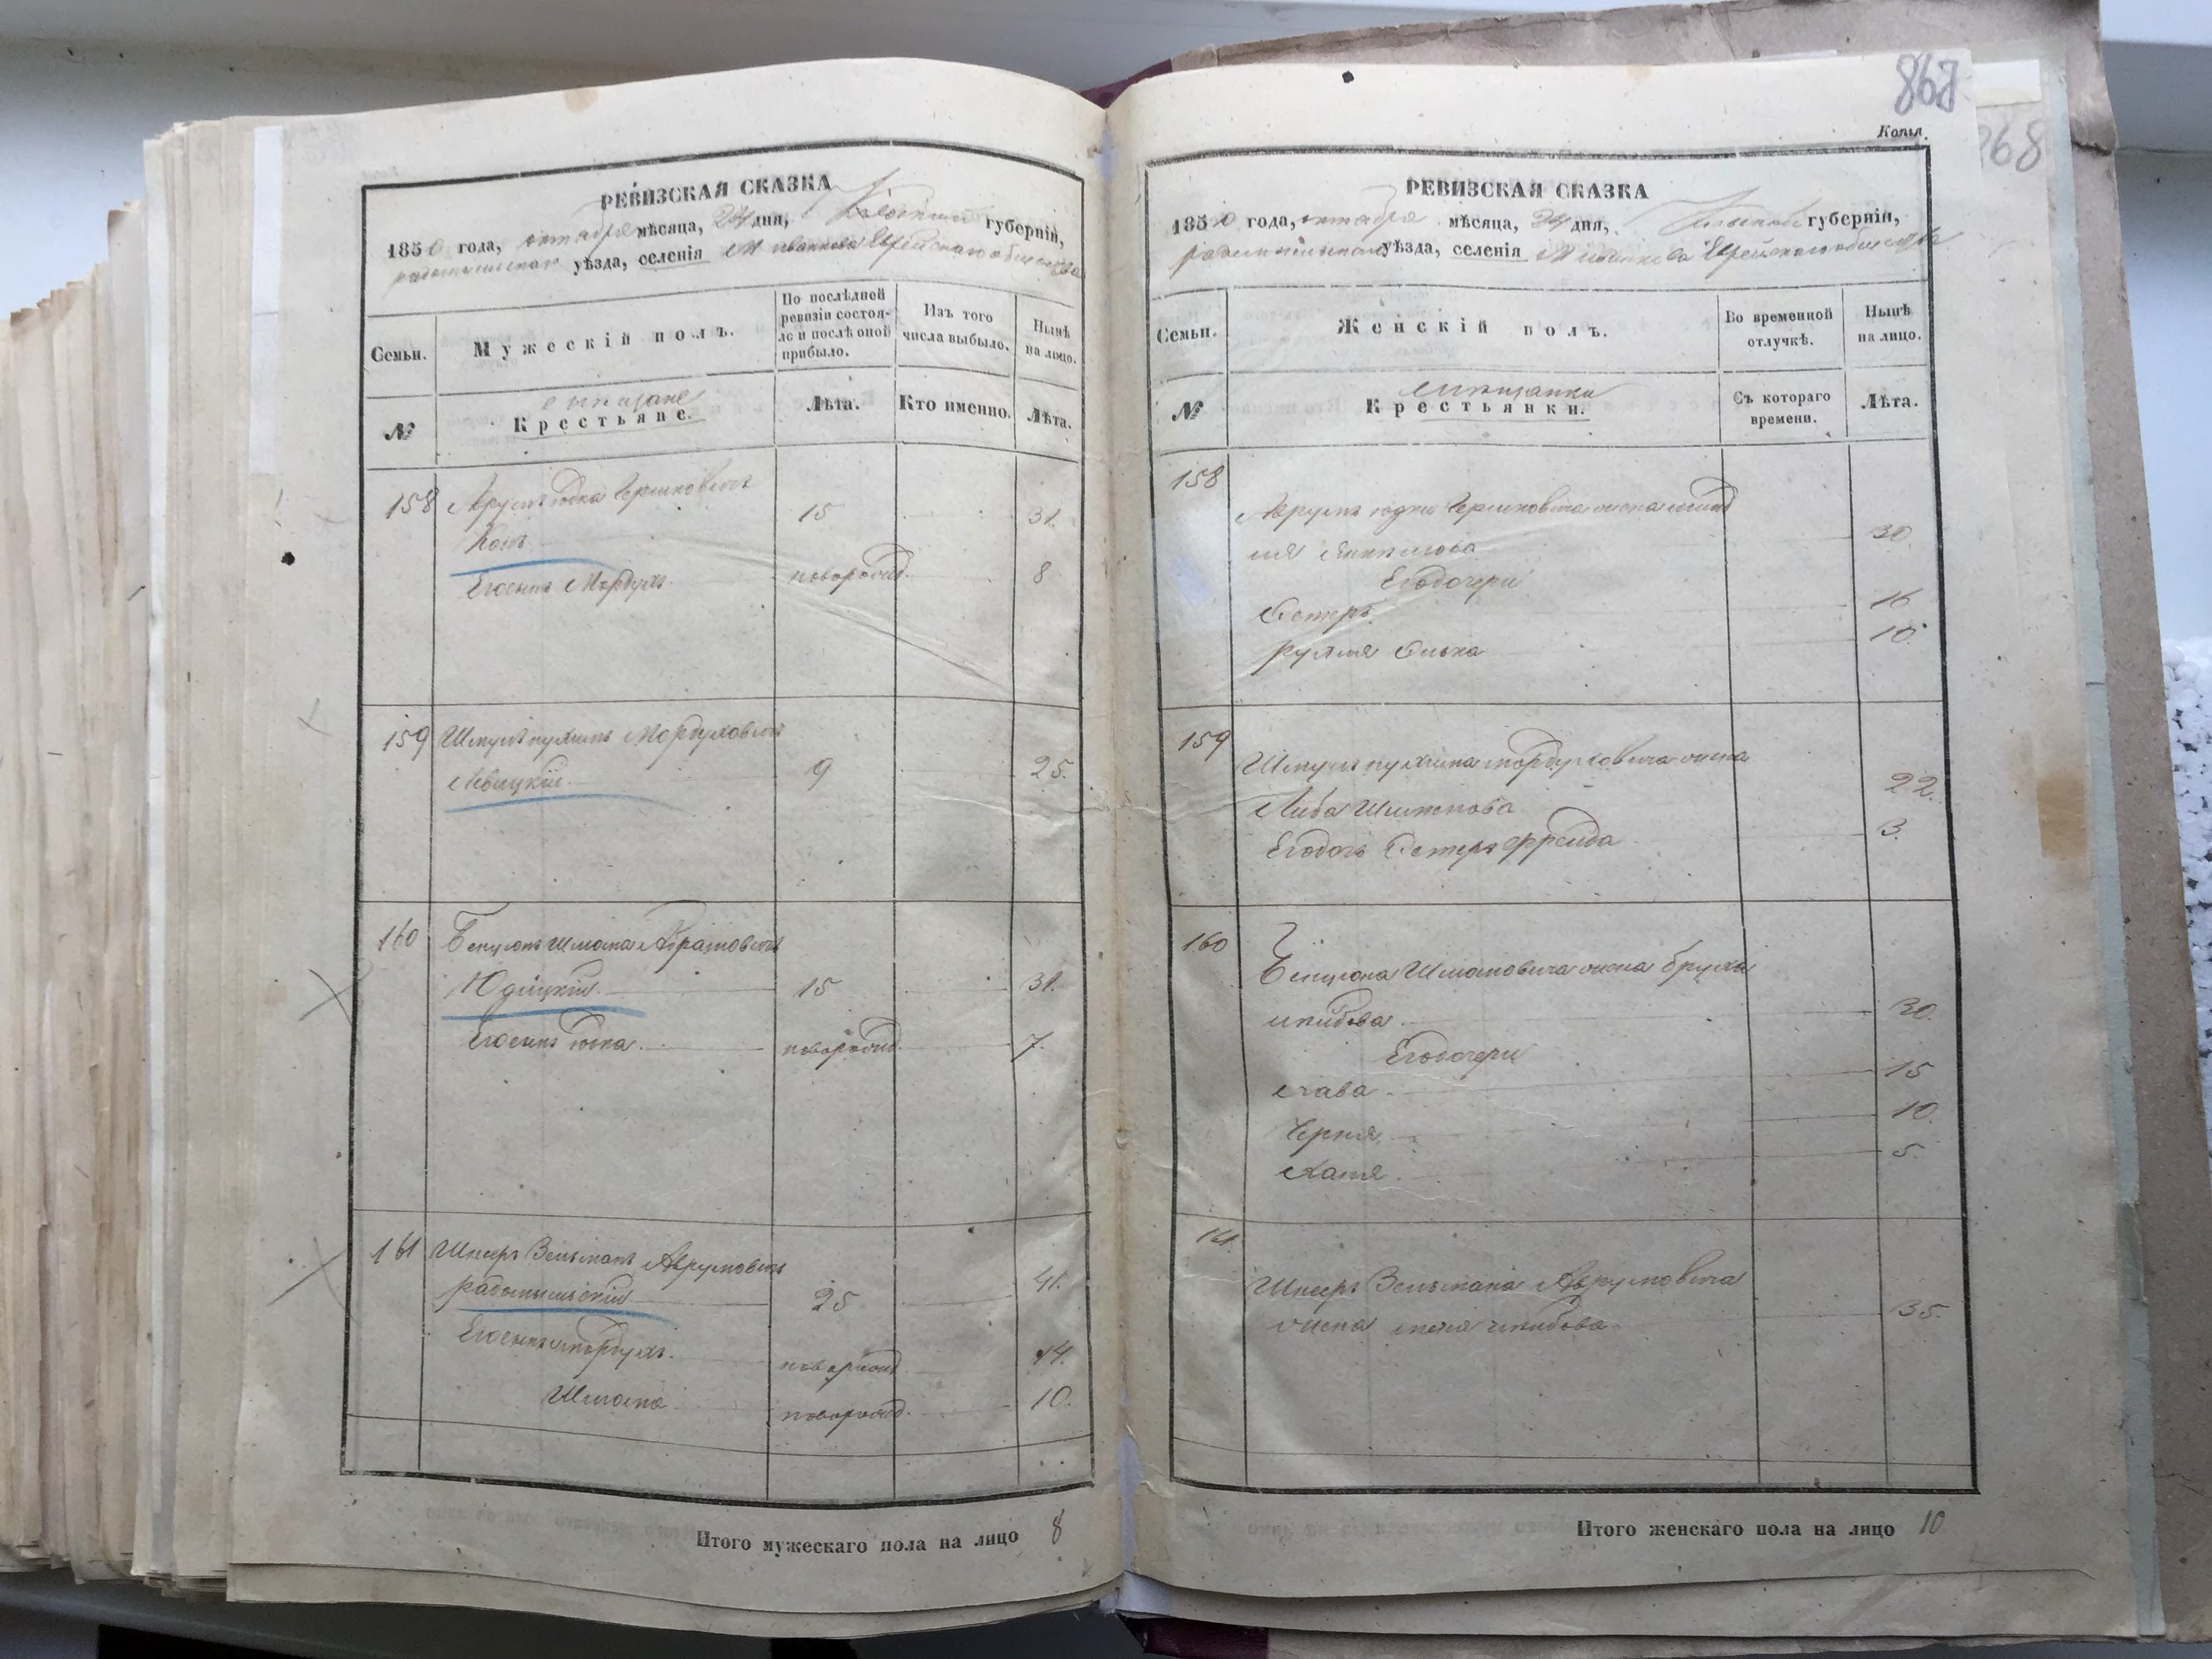 867
268
Копія.
РЕВИЗСКАЯ СКАЗКА
1850 года, октября мѣсяца, 24 дня, Кіевской губерніи,
радомысльскаго уѣзда, селенія М иванкова Еврейскаго общества
Семьи.
Мужескій полъ.
По послѣдней ревизіи состояло и послѣ оной прибыло.
Изъ того числа выбыло.
Нынѣ на лицо.
№
мѣщане
Крестьяне.
Лѣта.
Кто именно.
Лѣта.
158 Аврумъ юдка Гершковичъ
15 31.
Когъ
Егосынъ Мордухъ новорожд. 8
159 Шмуль нухимъ Мордуховичъ
Левицкій 9 25.
160 Бенціонъ Шліома Абрамовичъ
Юдицкій 15 31.
Егосынъ юдка новорожд. 7.
161 Шнееръ Зельманъ Аврумовичъ
радомысльскій 25 41.
Егосынъ мордухъ. новорожд. 14.
Шліома новорожд. 10.
Итого мужескаго пола на лицо 8
РЕВИЗСКАЯ СКАЗКА
1850 года, октября мѣсяца, 24 дня, Кіевской губерніи,
радомысльскаго уѣзда, селенія М иванкова Еврейскаго общества
Семьи.
Женскій полъ.
Во временной отлучкѣ.
Нынѣ на лицо.
№
мѣщанки
Крестьянки.
Съ котораго времени.
Лѣта.
158
Аврумъ юдки Гершковича жена
30.
Егодочери
Естеръ 16
10.
159
Шмуль нухима мордуховича жена
Либа 22.
Егодочь Естеръ фрейда 3.
160
Бенціона Шліомовича жена бруха
лейбова 30.
Егодочери
Хава 15
Черня 10.
Хася 5.
161.
Шнееръ Зельмана Аврумовича
жена лейбова 35.
Итого женскаго пола на лицо 10